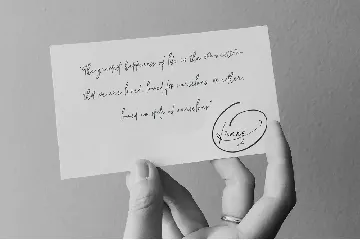 "The greatest happiness of life is the conviction
that we are loved, loved for ourselves, or rather,
loved in spite of ourselves"